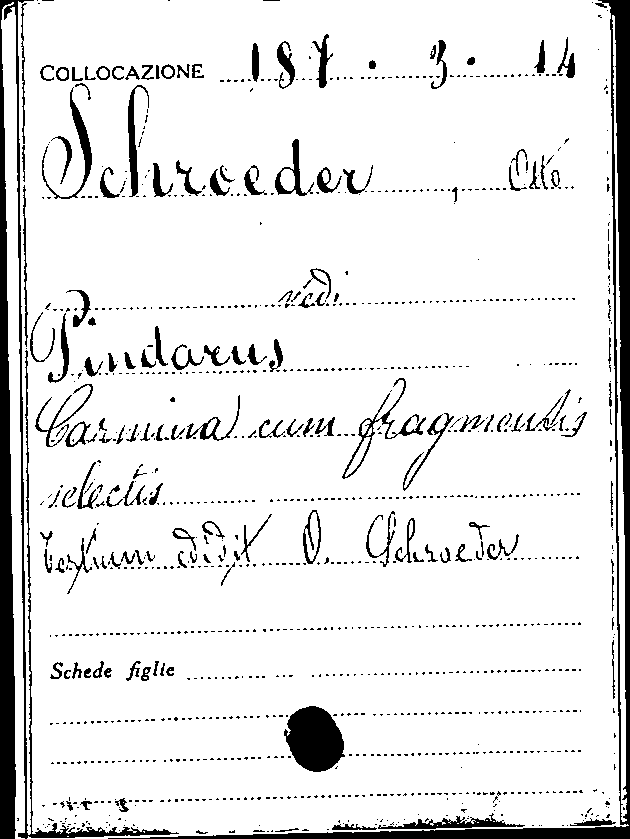 COLLOCAZIONE 187 . 3 . 14
Schroeder , Otto
vedi
Pindarus
Carmina cum fragmentis
selectis
textum edidit O. Schroeder
Schede figlie